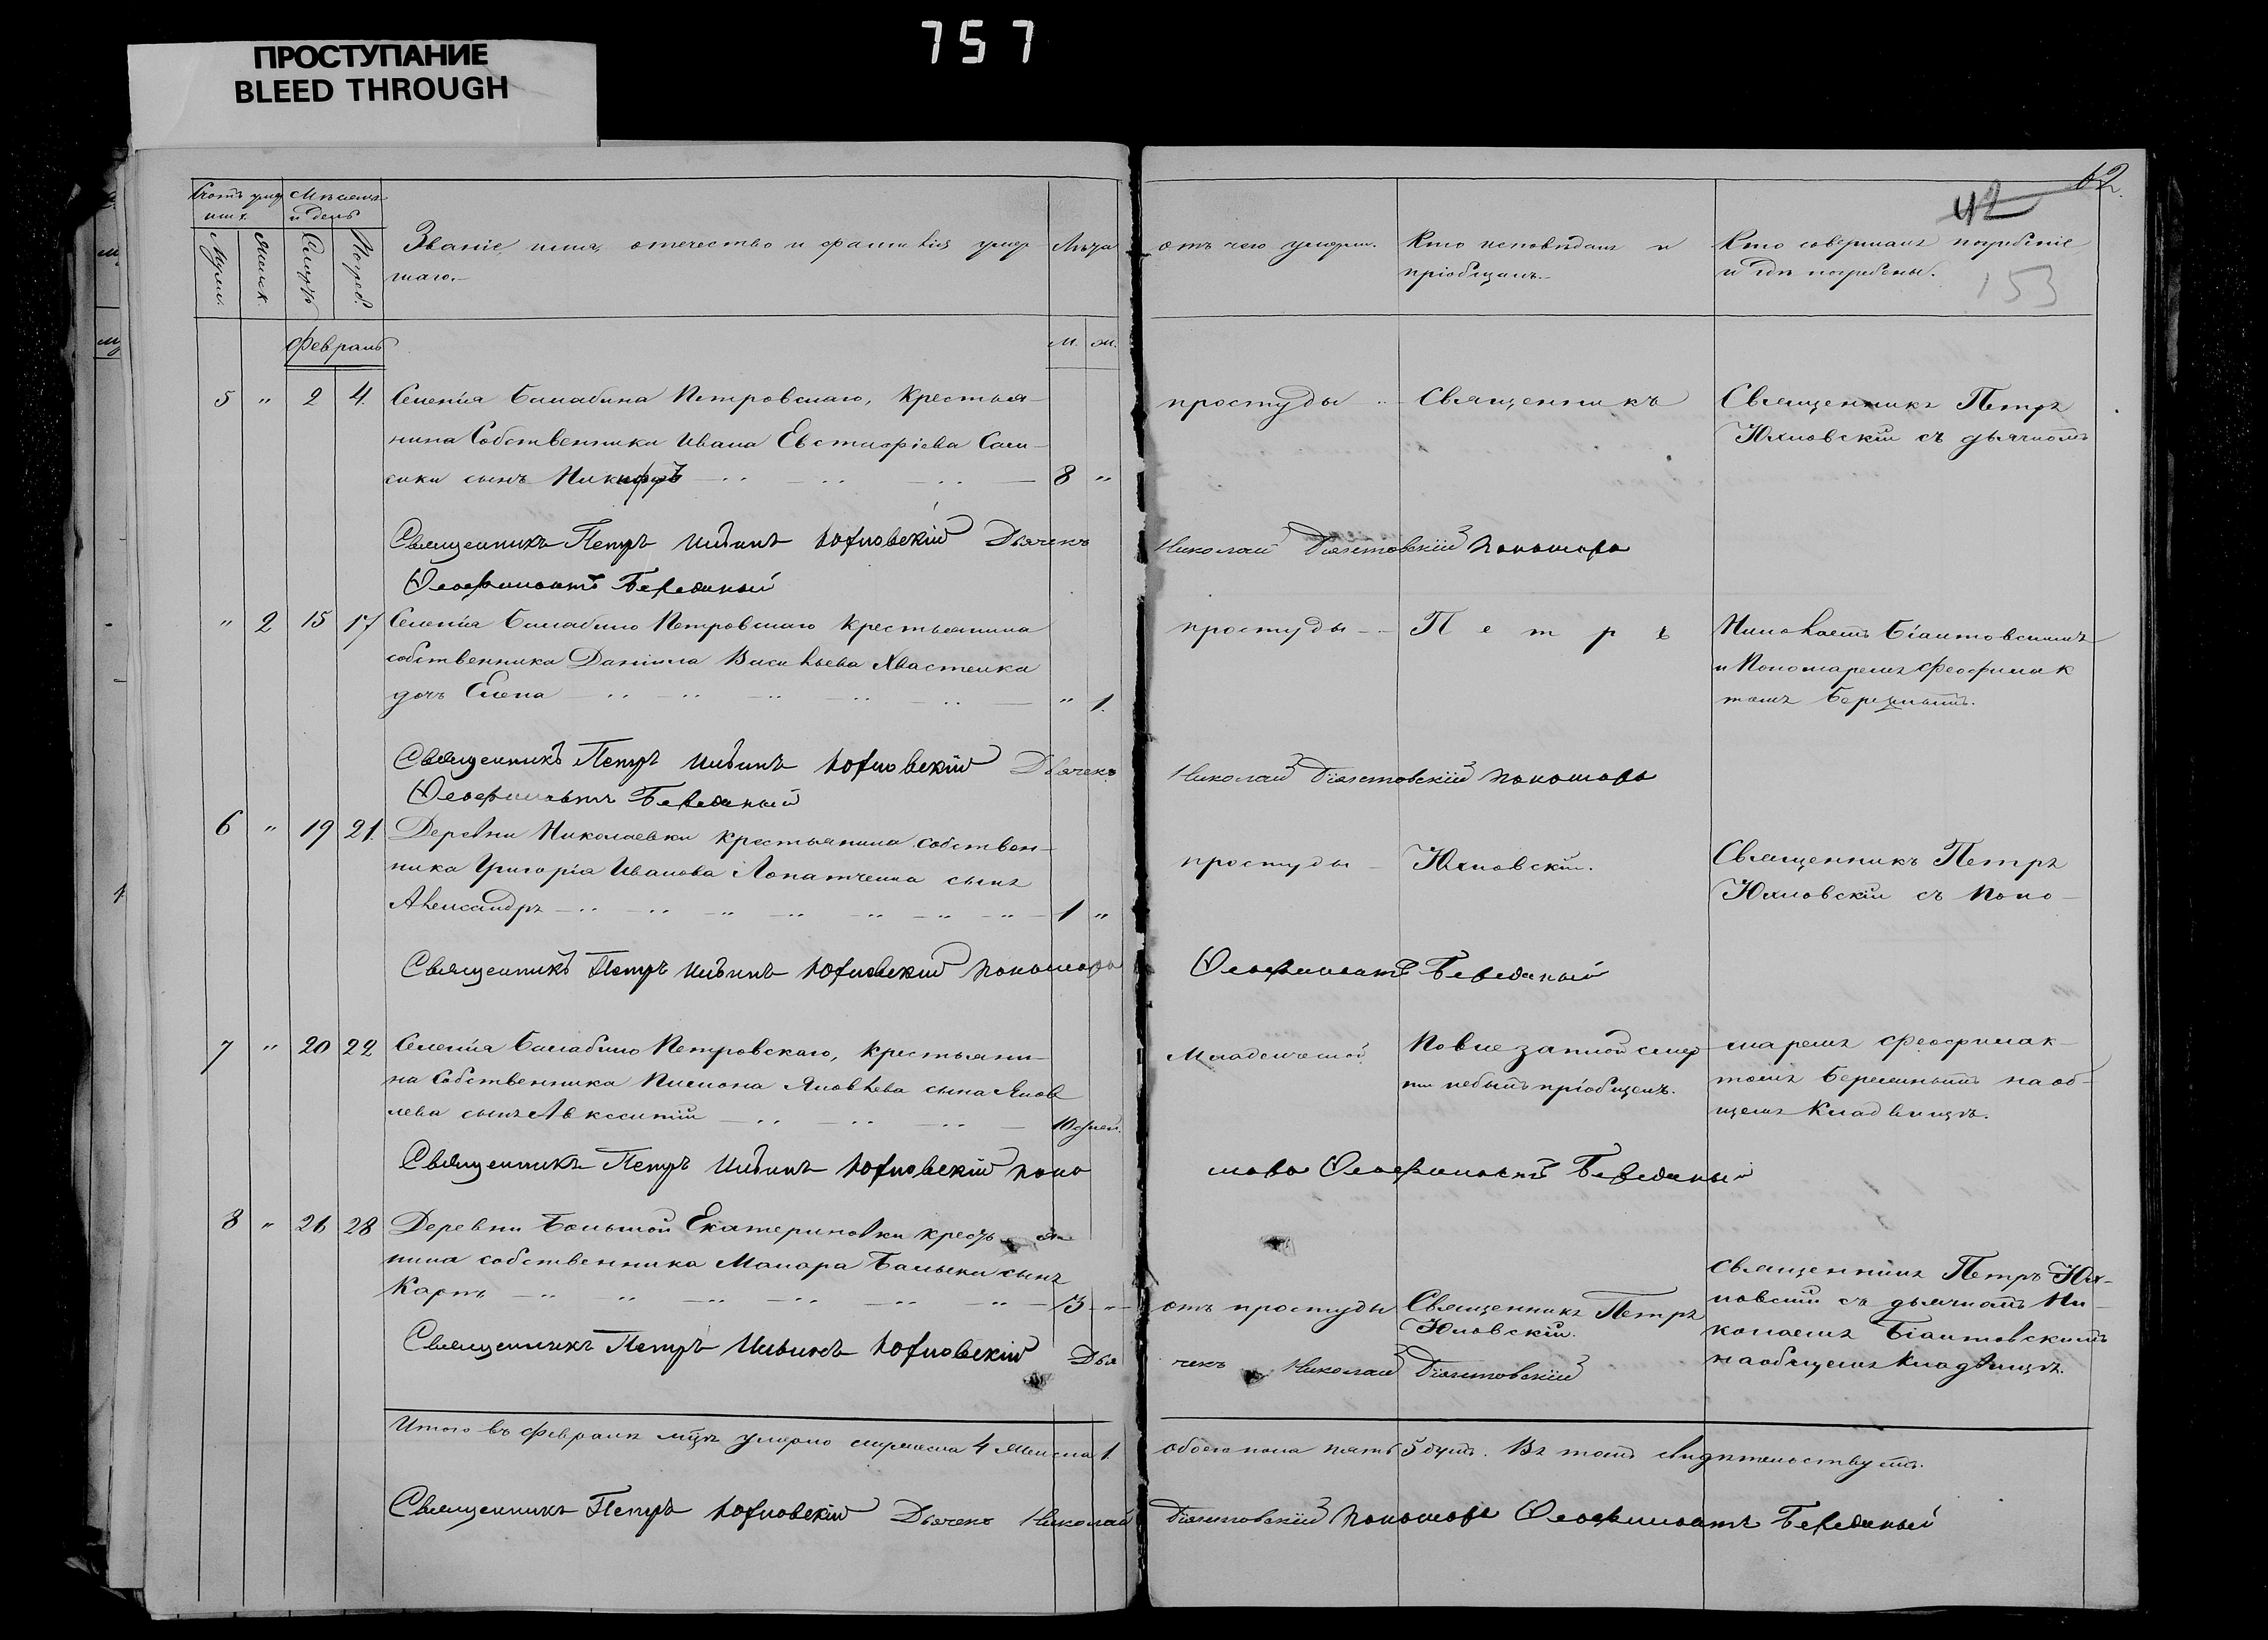 757
ПРОСТУПАНИЕ
BLEED THROUGH
62.
42
153
Счетъ умер Мѣсяцъ
ших. и день
Муж. Женск. Смерт. Погреб.
Званіе, имя, отечество и фамилія умер-
шаго.
Лѣта
отъ чего умерли.
Кто исповѣдалъ и
пріобщалъ.
Кто совершалъ погребеніе
и гдѣ погребены.
Февраль
М. Ж.
5 " 2 4. Селенія Балабина Петровскаго, крестья-
нина Собственника Ивана Евстафіева
сики сынъ Никифоръ 8 "
простуды Священникъ Священникъ Петръ
Юхновскій съ дьячкомъ
Священникъ Петръ Юхновскій Дьячекъ Николай Біантовскій Пономарь
Феофилактъ Бережный
" 2 15 17 Селенія Балабино Петровскаго крестьянина
собственника Даніила Васильева Хвастенка
дочь Елена " 1.
простуды Петръ Николаемъ Біантовскимъ
и Пономаремъ Феофилак
томъ Бережнымъ.
Священникъ Петръ Юхновскій Дьячекъ Николай Біантовскій Пономарь
Феофилактъ Бережный
6 " 19 21. Деревни Николаевки крестьянина собствен-
ника Григорія Иванова Лопатченка сынъ
Александръ 1 "
простуды Юхновскій. Священникъ Петръ
Юхновскій съ Поно-
Священникъ Петръ Юхновскій Пономарь Феофилактъ Бережный
7 " 20 22 Селенія Балабино Петровскаго, крестьяни-
на Собственника Пимона Яковлева сына Яков
лева сынъ Авксентій 10 дней.
Младенческой По внезапной смер
ти небылъ пріобщенъ.
маремъ Феофилак-
томъ Бережнымъ на об-
щемъ Кладбищѣ.
Священникъ Петръ Юхновскій Поно марь Феофилактъ Бережный
8 " 26 28 Деревни Большой Екатериновки кресть ян
нина собственника Макара сынъ
Карпъ 3 "
отъ простуды Священникъ Петръ
Юновскій.
Священникъ Петръ Юх-
новскій съ дьячкомъ Ни-
колаемъ Біантовскимъ
на общемъ Кладбищѣ.
Священникъ Петръ Юхновскій Дья чекъ Николай Біантовскій
Итого въ Февралѣ мцѣ умерло мужеска 4 Женска 1. обоего пола пять 5 душъ. Въ томъ свидѣтельствуемъ.
Священникъ Петръ Юхновскій Дьячекъ Николай Біантовскій Пономарь Феофилактъ Бережный